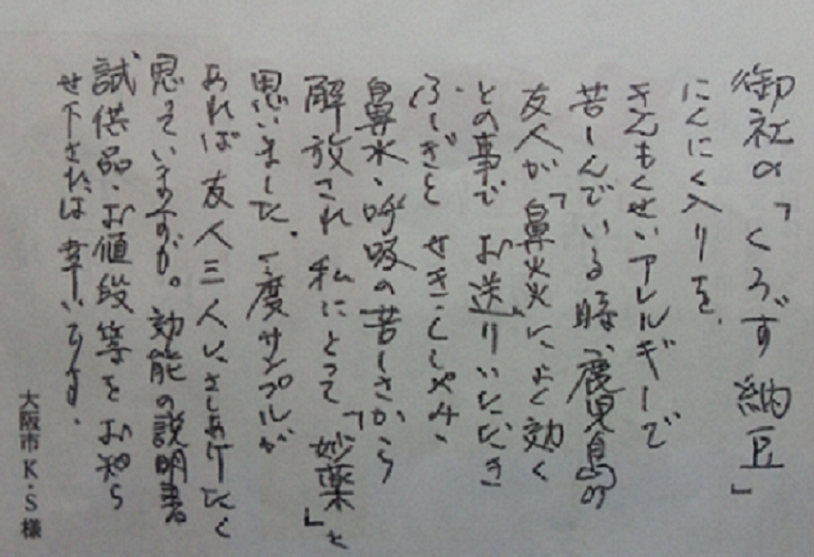 御社の「くろず納豆」
にんにく入りを、
きんもくせいアレルギーで
苦しんでいる時、鹿児島の
友人が「鼻炎」によく効く
との事で お送りいただき
ふしぎと せき・くしゃみ、
鼻水、呼吸の苦しさから
解放され 私にとって「妙薬」と
思いました。一度サンプルが
あれば 友人三人にさしあげたく
思っていますが。効能の説明書
試供品・お値段等を お知ら
せ下されば 幸いです。
大阪市 K・S 様